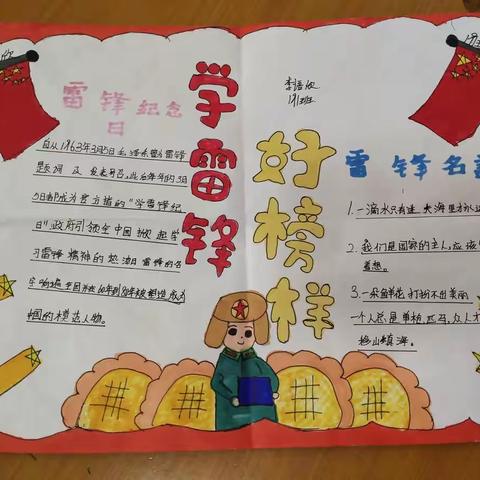 雷锋纪念
日
自从1963年3月5日毛泽东为雷锋
题词 发表号召,此后每年的3月
5日都成为官方的"学雷锋纪
日"政府引领全中国掀起学
习雷锋精神的热潮雷锋的名
字响遍
中国的模范人物。
学雷锋
好榜样
李语
191班
雷锋名
1.一滴水只有进大海里才
2.我们是国家的主人,应该
着想。
3.一朵鲜花打扮不出美丽
一个人总是单枪匹马,众人才
移山填海。